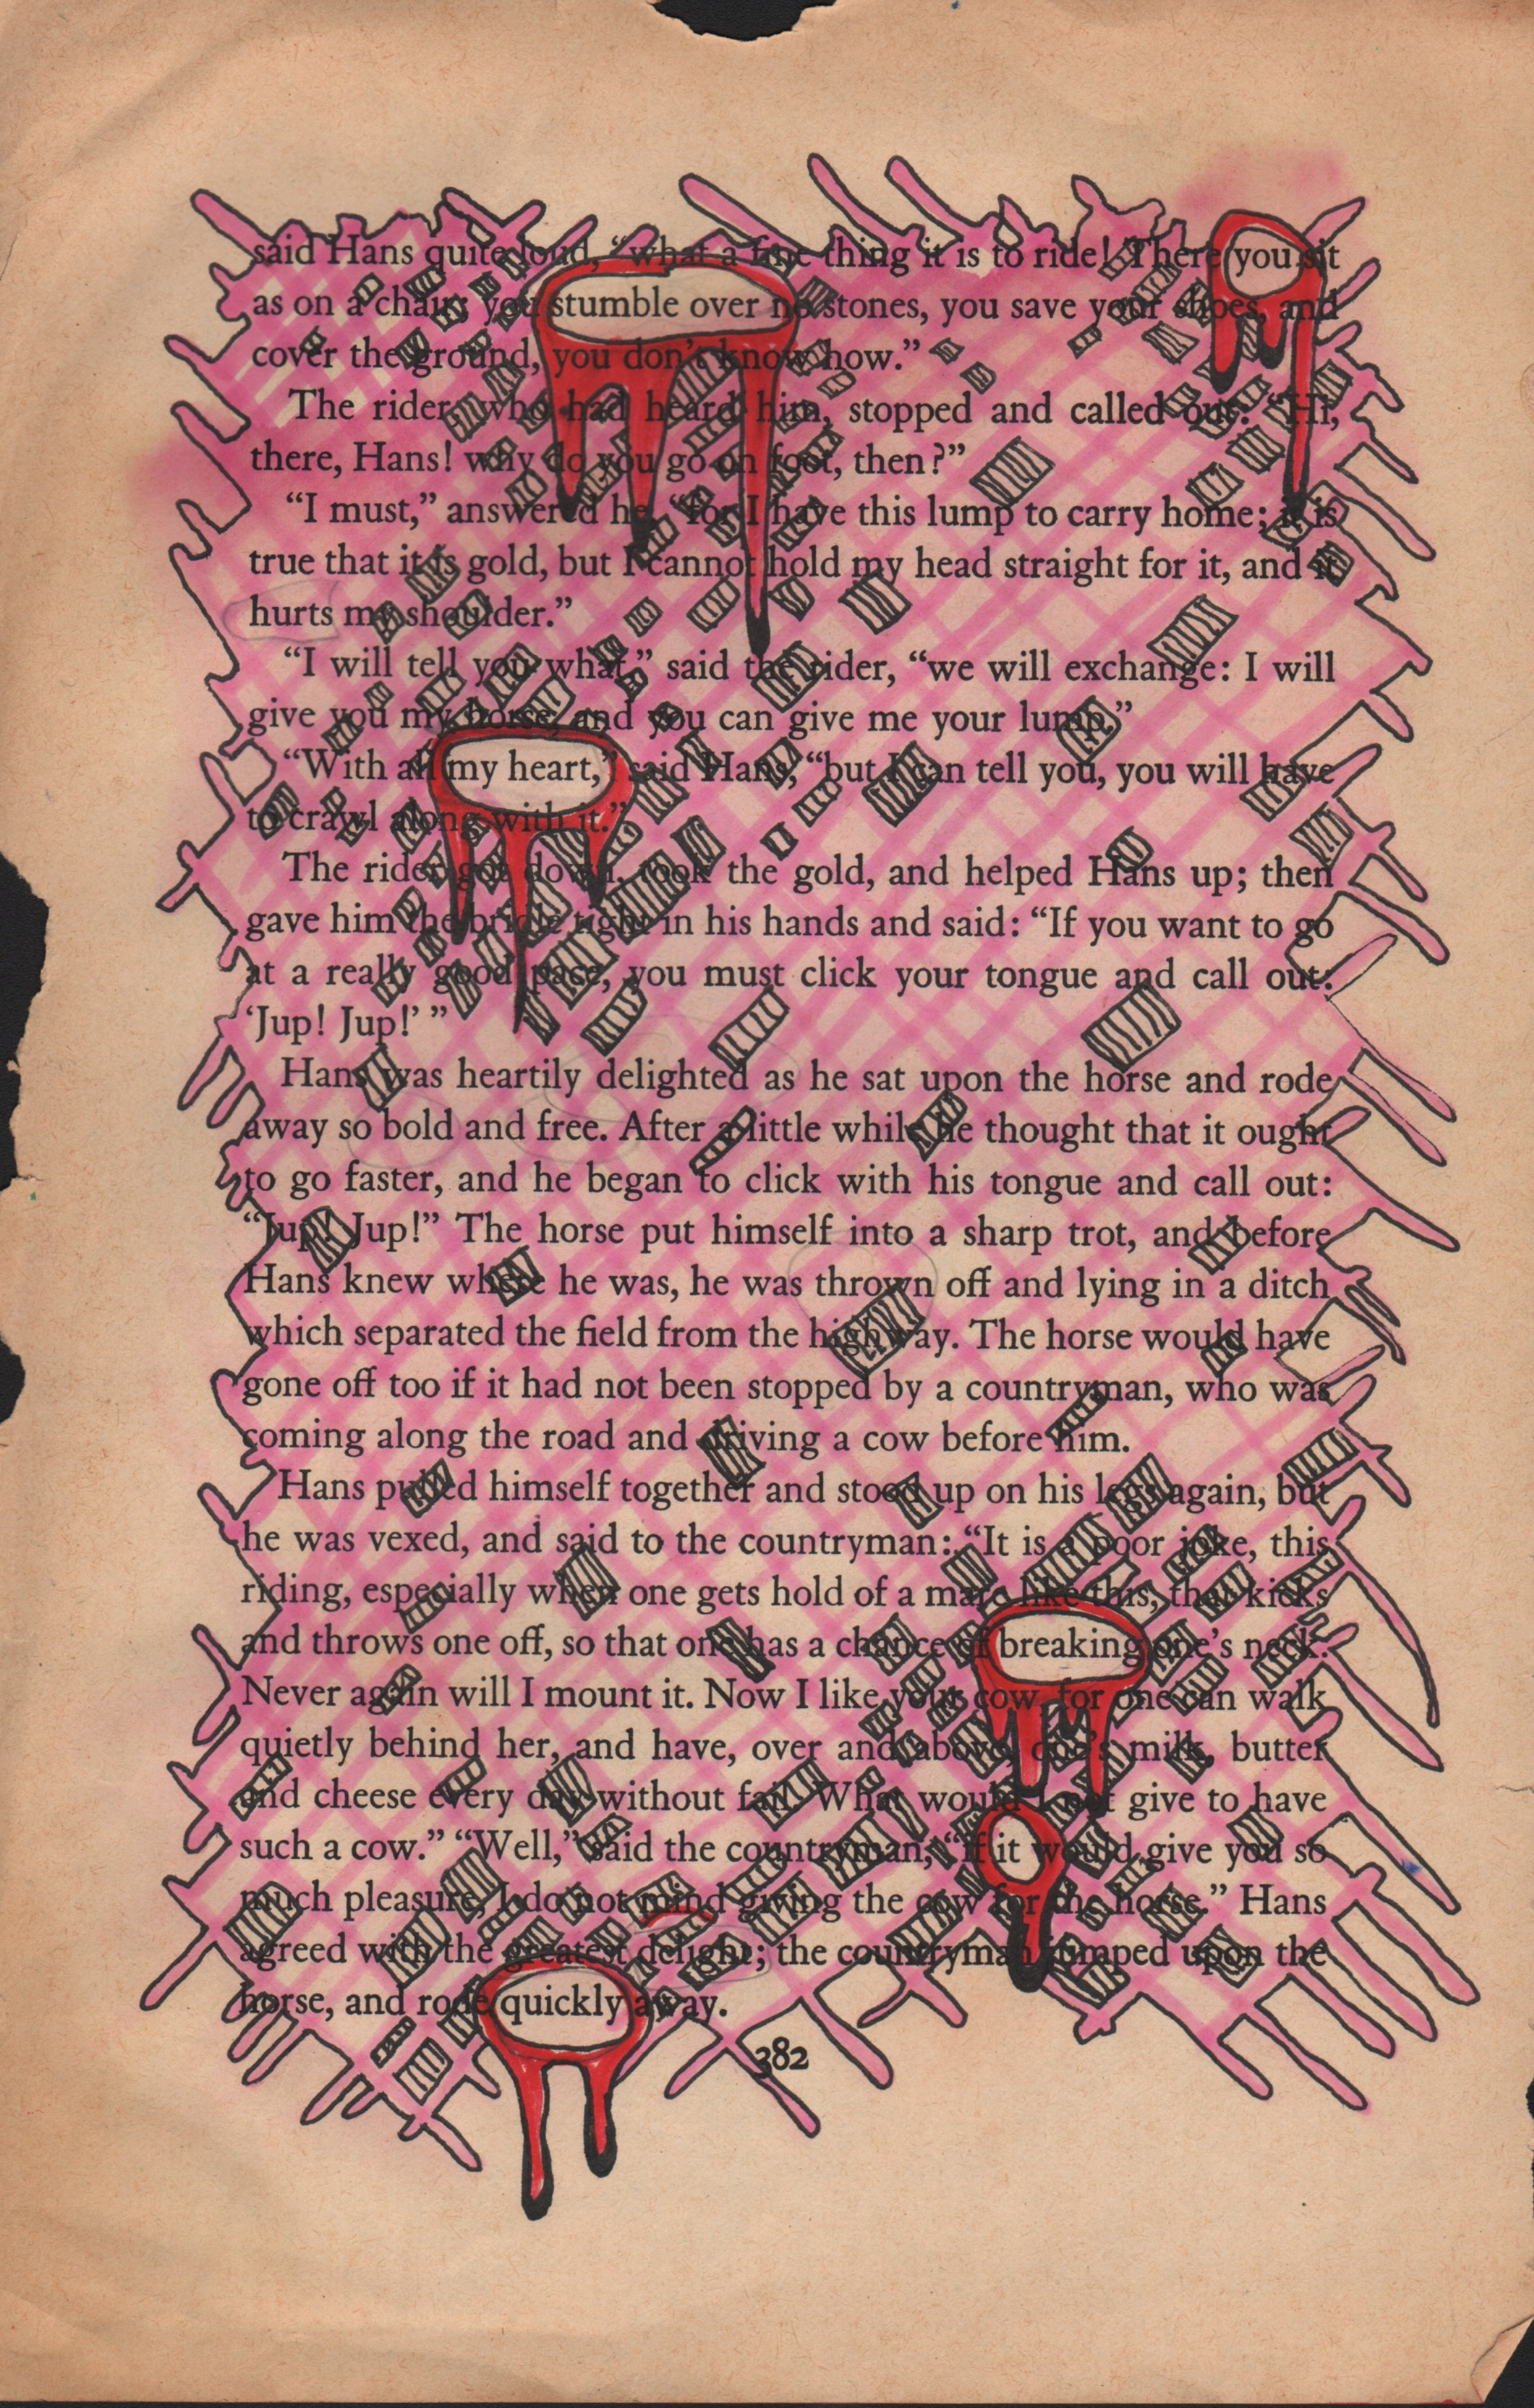 said Hans quite loud, “what a fine thing it is to ride! There you sit
as on a chair; you stumble over no stones, you save your shoes, and
cover the ground, you don’t know how.”
The rider, who had heard him, stopped and called out: “Hi,
there, Hans! why do you go on foot, then?”
“I must,” answered he, “for I have this lump to carry home; it is
true that it is gold, but I cannot hold my head straight for it, and it
hurts my shoulder.”
“I will tell you what,” said the rider, “we will exchange: I will
give you my horse, and you can give me your lump.”
“With all my heart,” said Hans, “but I can tell you, you will have
to crawl along with it.”
The rider got down, took the gold, and helped Hans up; then
gave him the bridle tight in his hands and said: “If you want to go
at a really good pace, you must click your tongue and call out:
‘Jup! Jup!’ ”
Hans was heartily delighted as he sat upon the horse and rode
away so bold and free. After a little while he thought that it ought
to go faster, and he began to click with his tongue and call out:
“Jup! Jup!” The horse put himself into a sharp trot, and before
Hans knew where he was, he was thrown off and lying in a ditch
which separated the field from the highway. The horse would have
gone off too if it had not been stopped by a countryman, who was
coming along the road and driving a cow before him.
Hans pulled himself together and stood up on his legs again, but
he was vexed, and said to the countryman: “It is a poor joke, this
riding, especially when one gets hold of a mare like this, that kicks
and throws one off, so that one has a chance of breaking one’s neck.
Never again will I mount it. Now I like your cow, for one can walk
quietly behind her, and have, over and above, one’s milk, butter
and cheese every day without fail. What would I not give to have
such a cow.” “Well,” said the countryman, “if it would give you so
much pleasure, I do not mind giving the cow for the horse.” Hans
agreed with the greatest delight; the countryman jumped upon the
horse, and rode quickly away.
382